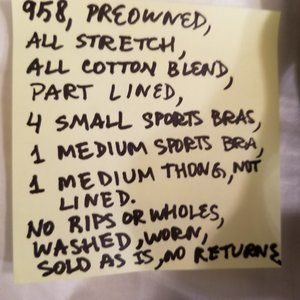 958, PREOWNED,
ALL STRETCH,
ALL COTTON BLEND,
PART LINED,
4 SMALL SPORTS BRAS,
1 MEDIUM SPORTS BRA,
1 MEDIUM THONG, NOT
LINED.
NO RIPS OR WHOLES,
WASHED, WORN,
SOLD AS IS, NO RETURNS